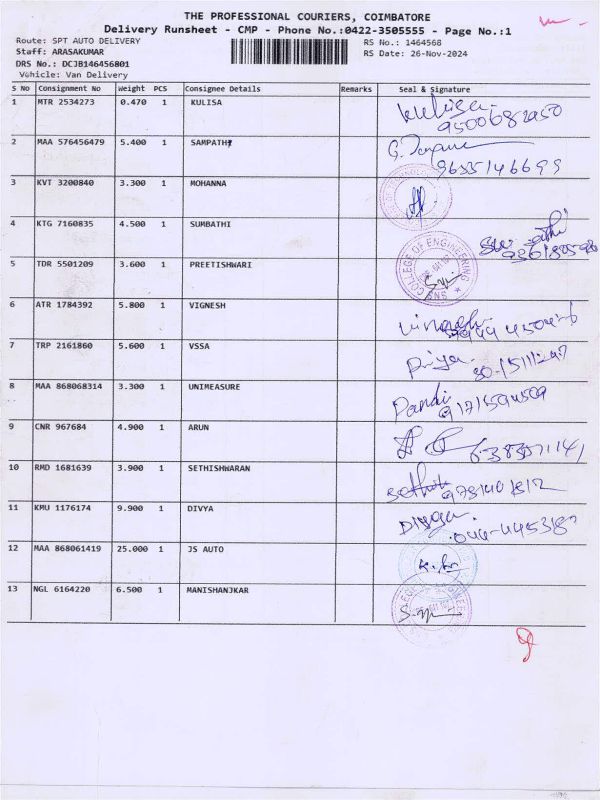 THE PROFESSIONAL COURIERS, COIMBATORE
Delivery Runsheet - CMP - Phone No.:0422-3505555 - Page No.:1
Route: SPT AUTO DELIVERY RS No.: 1464568
Staff: ARASAKUMAR RS Date: 26-Nov-2024
DRS No.: DCJB146456801
Vehicle: Van Delivery
S No Consignment No Weight PCS Consignee Details Remarks Seal & Signature
1 MTR 2534273 0.470 1 KULISA Kulisa
9500682950
2 MAA 576456479 5.400 1 SAMPATH
3 KVT 3200840 3.300 1 MOHANNA
4 KTG 7160835 4.500 1 SUMBATHI
5 TDR 5501209 3.600 1 PREETISHWARI SNS COLLEGE OF ENGINEERING
6 ATR 1784392 5.800 1 VIGNESH
7 TRP 2161860 5.600 1 VSSA Priya
8 MAA 868068314 3.300 1 UNIMEASURE Pandi
9 CNR 967684 4.900 1 ARUN
10 RMD 1681639 3.900 1 SETHISHWARAN
11 KMU 1176174 9.900 1 DIVYA
12 MAA 868061419 25.000 1 JS AUTO
13 NGL 6164220 6.500 1 MANISHANJKAR